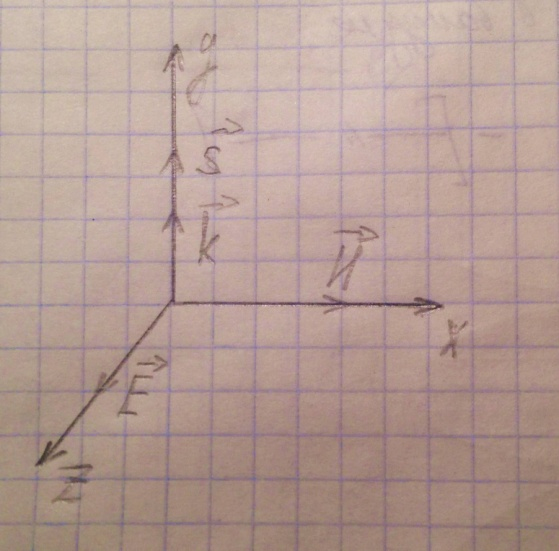 y
S
k
H
x
E
Z